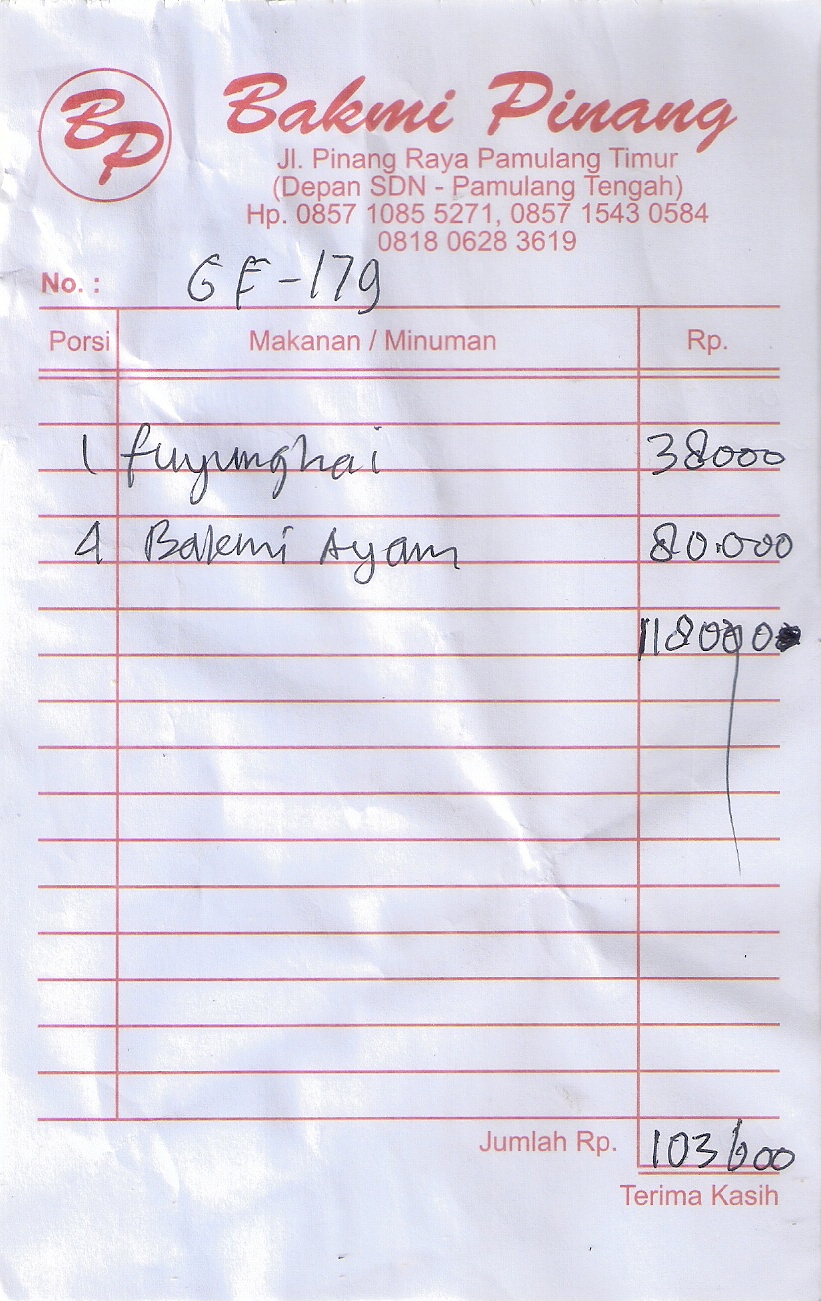 BP
Bakmi Pinang
Jl. Pinang Raya Pamulang Timur
(Depan SDN - Pamulang Tengah)
Hp. 0857 1085 5271, 0857 1543 0584
0818 0628 3619
No. : GF-179
Porsi Makanan / Minuman Rp.
1 fuyunghai 38000
4 Bakmi Ayam 80.000
118000
Jumlah Rp. 103/000
Terima Kasih